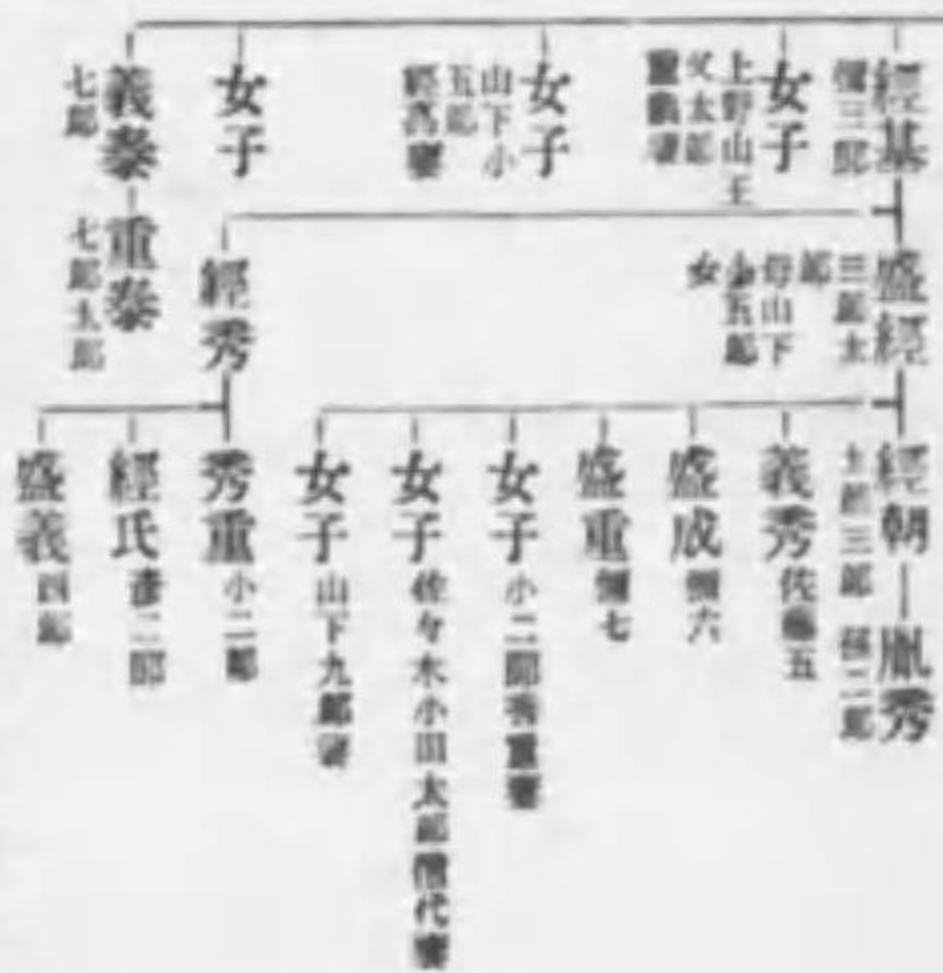 經基
彌三郎
女子
上野山王
又太郎
女子
山下小
五郎
經高妻
女子
義泰
七郎
重泰
七郎太郎
盛經
三郎太
郎
母山下
小五郎
女
經秀
經朝
太郎三郎
胤秀
孫二郎
義秀 佐藤五
盛成 彌六
盛重 彌七
女子 小二郎秀重妻
女子 佐々木小田太郎僧代妻
女子 山下九郎妻
秀重 小二郎
經氏 彥二郎
盛義 四郎